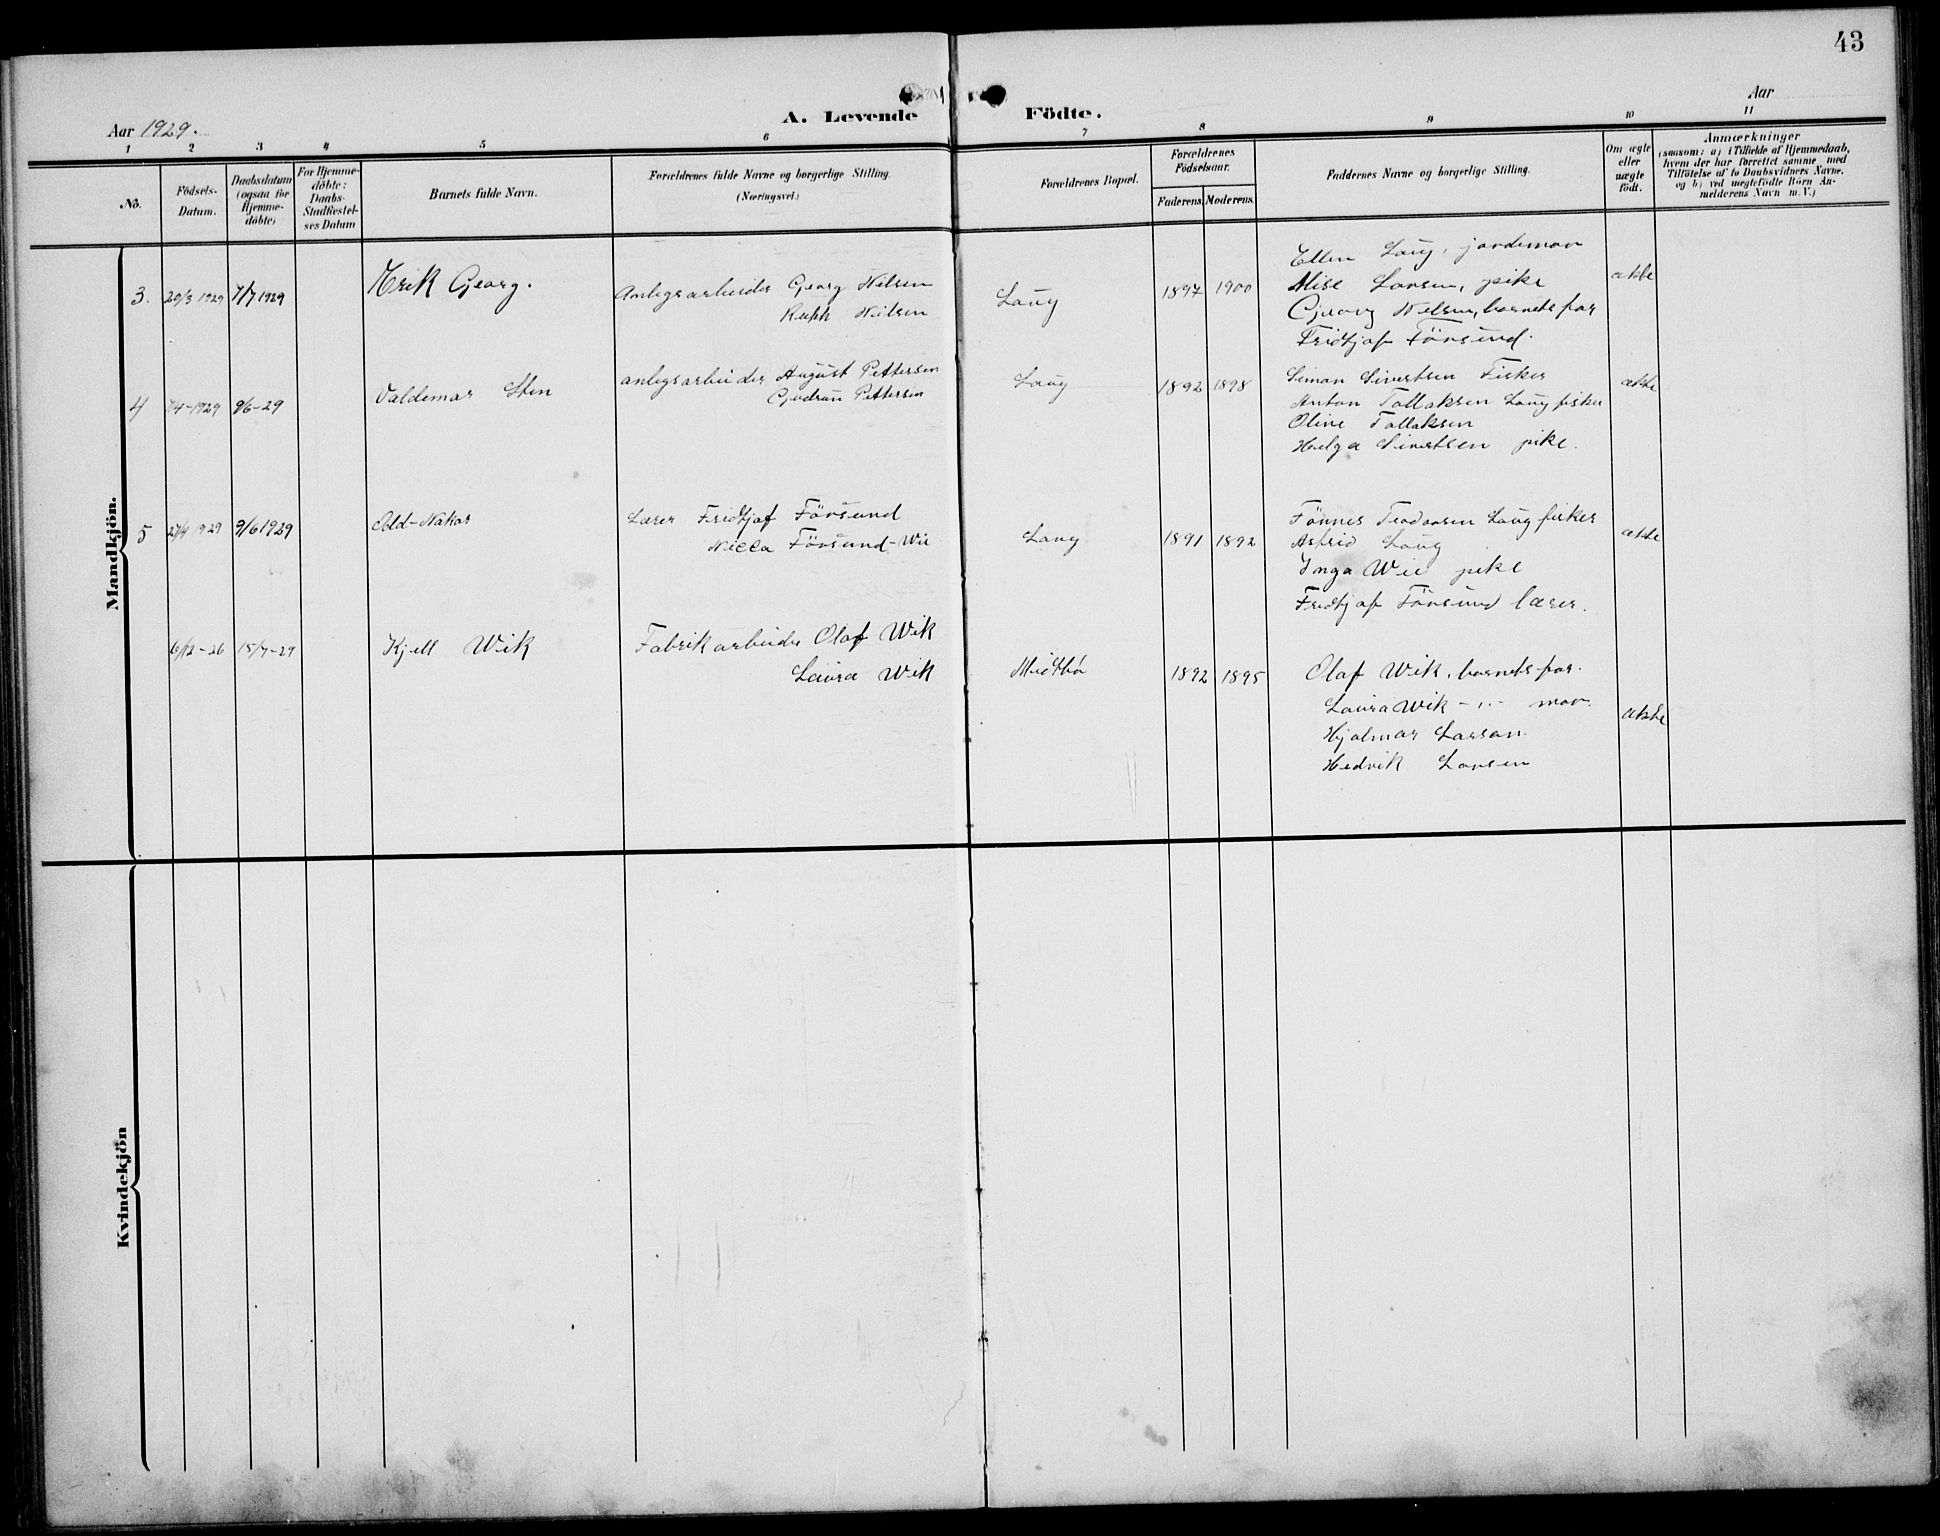 43
A. Levende Födte.
Aar 1929.
Aar
1 2 3 4 5 6 7 8 9 10 11
No.
Födsels-
Datum.
Daabsdatum
(ogsaa for
Hjemme-
döbte)
For Hjemme-
döbte:
Daabs-
Stadfæstel-
ses Datum
Barnets fulde Navn.
Forældrenes fulde Navne og borgerlige Stilling.
(Næringsvei.)
Forældrenes Bopæl.
Forældrenes
Födselsaar.
Faderens. Moderens.
Faddernes Navne og borgerlige Stilling.
Om ægte
eller
uægte
födt.
Anmærkninger
(saasom: a) i Tilfælde af Hjemmedaab,
hvem der har forrettet samme, med
Tilföielse af to Daabsvidners Navne,
og b) ved uægtefödte Börn An-
melderens Navn m. V.)
Mandkjön.
3. 20/3 1929 7/7 1929 Erik Georg. Anlegsarbeider Georg Nilsen
Ruth Nilsen
Laug 1897 1900
Ellen Laug, jordmor
Alise Larsen, pike
Georg Nilsen, barnets far
Fridtjof Försund.
ekte
4 7/4-1929 9/6-29 Valdemar Sten anlegsarbeider August Pettersen
Gudrun Pettersen
Laug 1892 1898
Simon Sivertsen Fisker
Anton Tollaksen Laug fisker
Oline Tollaksen
Helga Sivertsen pike.
ekte
5 27/4 1929 9/6 1929 Odd-Nakor Lærer Fridtjof Försund
Försund-Wie
Laug 1891 1892
Tönnes Teodorsen Laug fisker
Astrid Laug
Inga Wie pike
Fridtjof Försund lærer.
ekte
6/12-26 15/7-29 Kjell Wik Fabrikarbeider Olaf Wik
Laura Wik
Midtbø 1892 1895
Olaf Wik, barnets far.
Laura Wik -"- mor.
Hjalmar Larsen
Hedvik Larsen
ekte
Kvindekjön